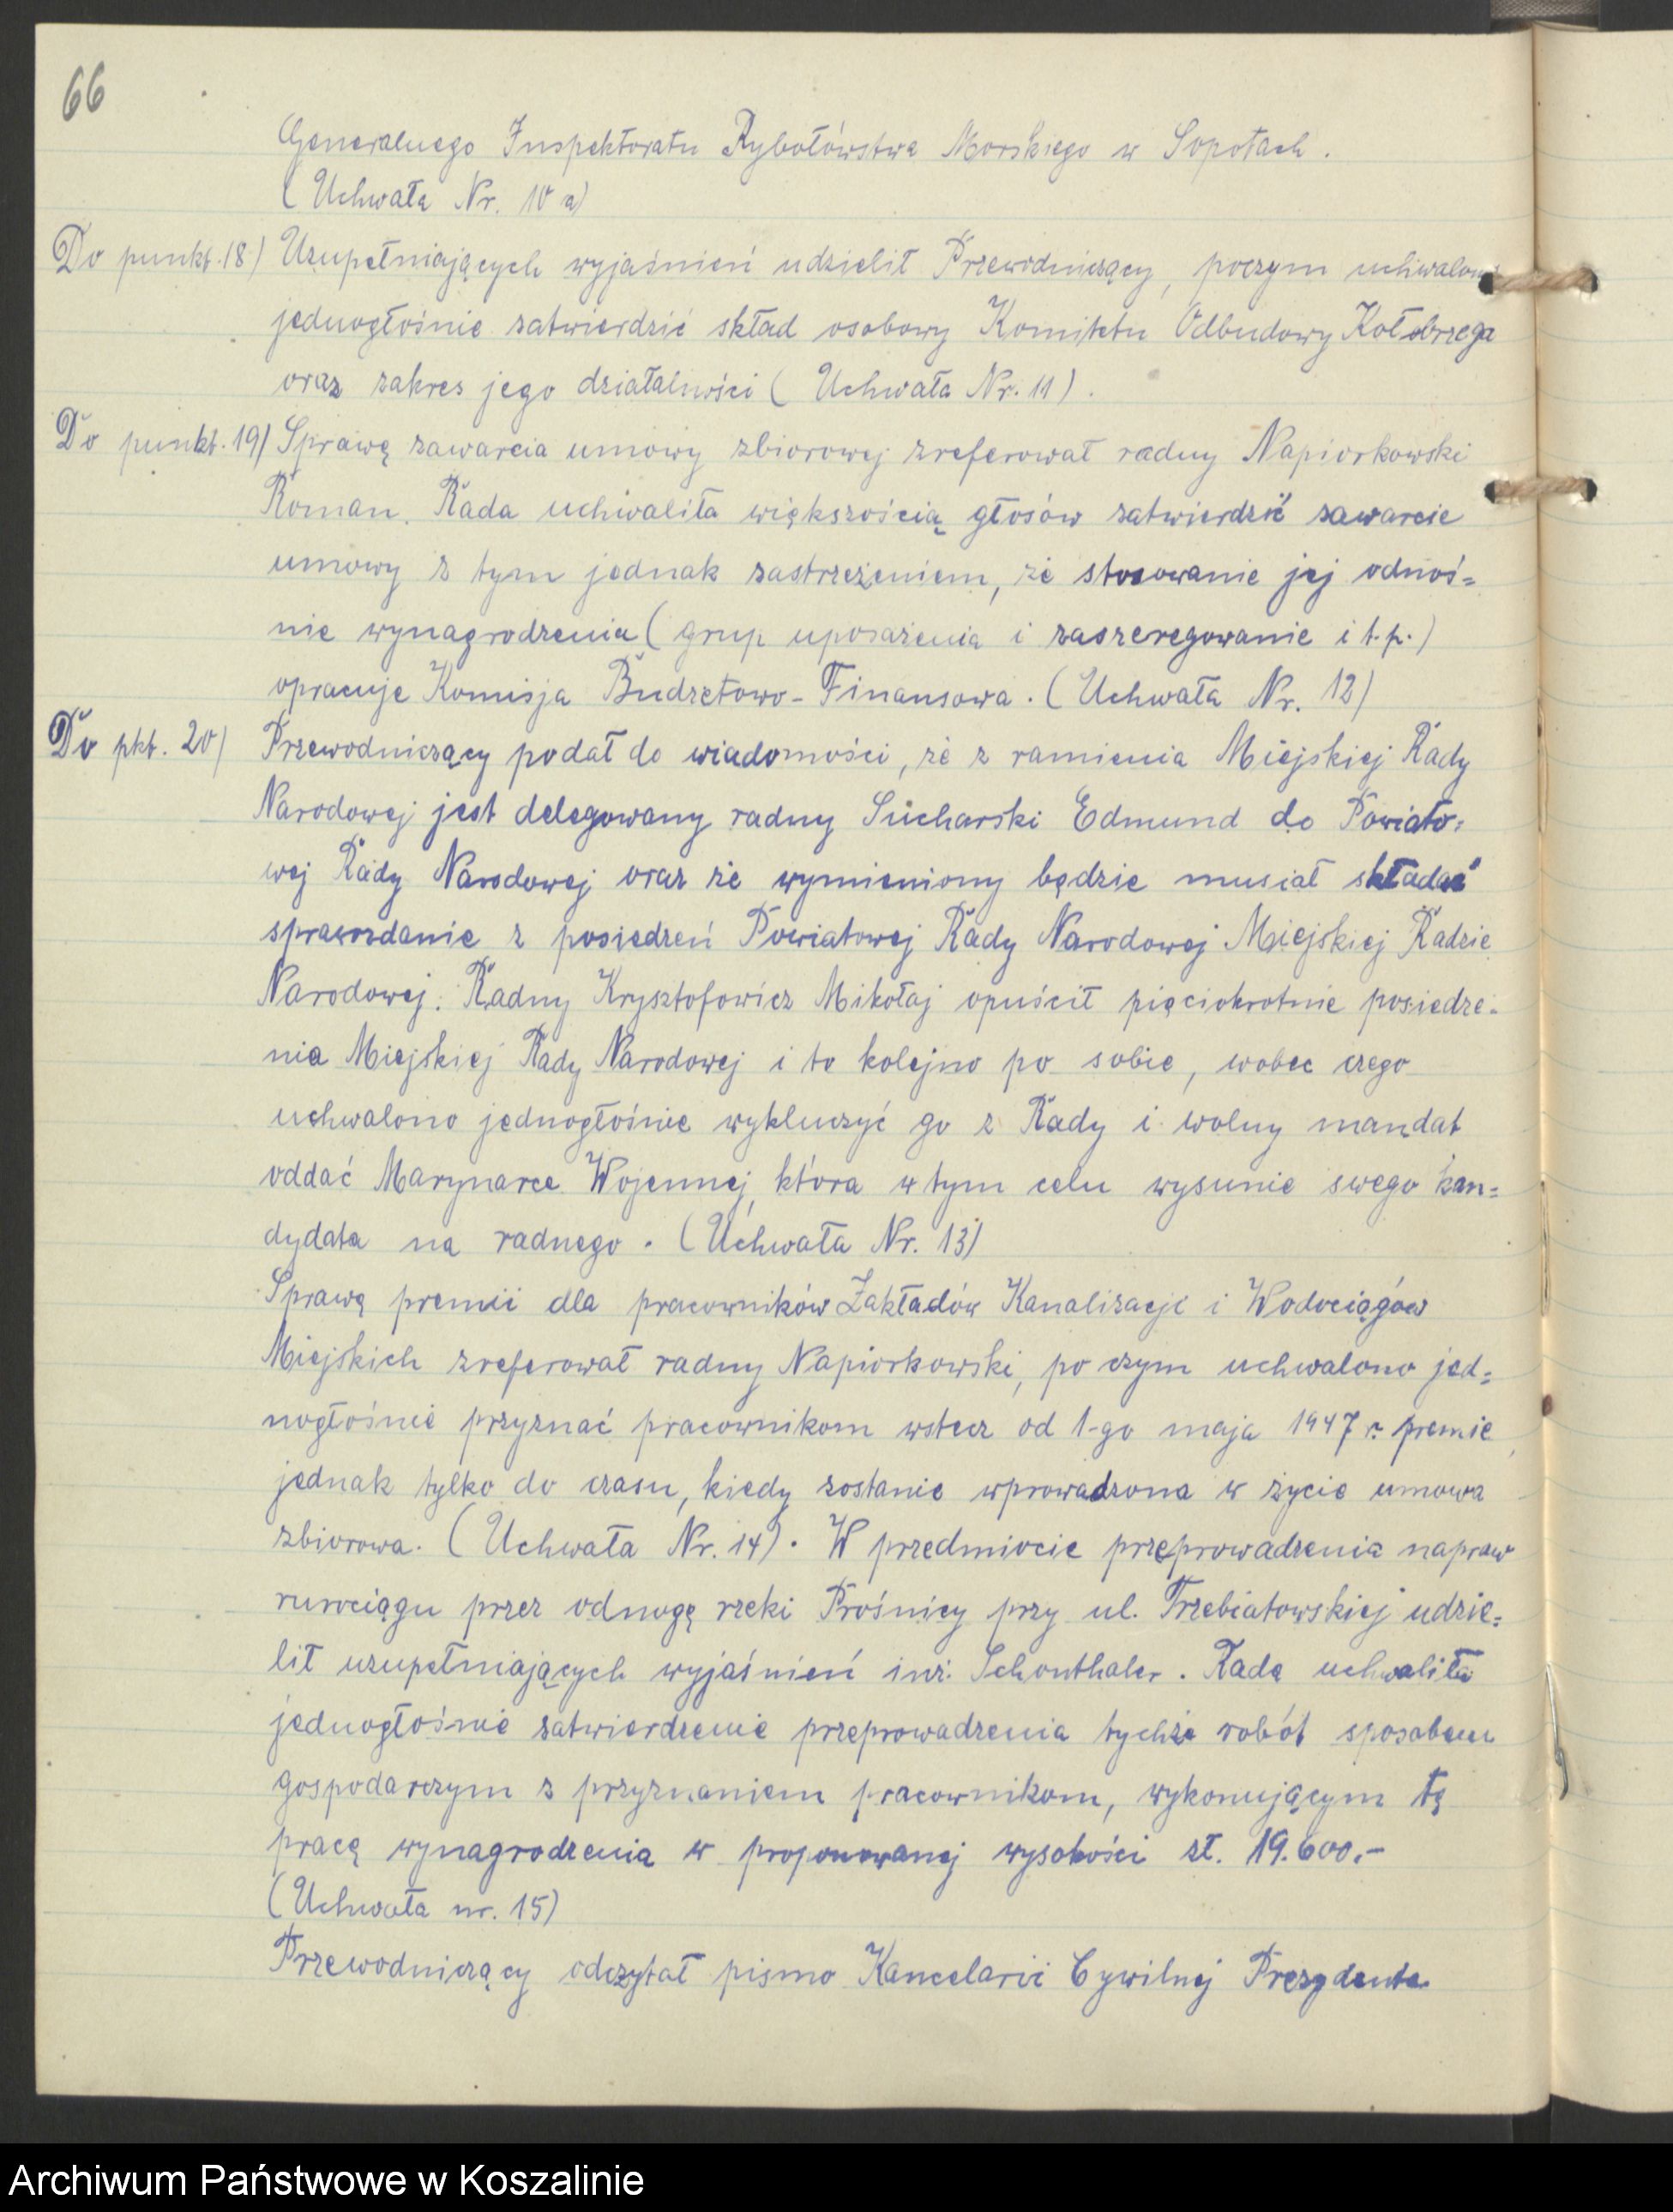 66
Generalnego Inspektoratu Rybołówstwa Morskiego w Sopotach.
(Uchwała Nr. 10 a)
Do punkt. 18) Uzupełniających wyjaśnień udzielił Przewodniczący, poczym uchwalono
jednogłośnie zatwierdzić skład osobowy Komitetu Odbudowy Kołobrzega
oraz zakres jego działalności (Uchwała Nr. 11).
Do punkt. 19) Sprawę zawarcia umowy zbiorowej zreferował radny Napiorkowski
Roman. Rada uchwaliła większością głosów zatwierdzić zawarcie
umowy z tym jednak zastrzeżeniem, że stosowanie jej odnoś=
nie wynagrodzenia (grup uposażenia i zaszeregowanie i t.p.)
opracuje Komisja Budżetowo-Finansowa. (Uchwała Nr. 12)
Do pkt. 20) Przewodniczący podał do wiadomości, że z ramienia Miejskiej Rady
Narodowej jest delegowany radny Sucharski Edmund do Powiato=
wej Rady Narodowej oraz że wymieniony będzie musiał składać
sprawozdanie z posiedzeń Powiatowej Rady Narodowej Miejskiej Radzie
Narodowej. Radny Krysztofowicz Mikołaj opuścił pięciokrotnie posiedze=
nia Miejskiej Rady Narodowej i to kolejno po sobie, wobec czego
uchwalono jednogłośnie wykluczyć go z Rady i wolny mandat
oddać Marynarce Wojennej, która w tym celu wysunie swego kan=
dydata na radnego. (Uchwała Nr. 13)
Sprawę premii dla pracowników Zakładów Kanalizacji i Wodociągów
Miejskich zreferował radny Napiorkowski, po czym uchwalono jed=
nogłośnie przyznać pracownikom wstecz od 1-go maja 1947 r. premie
jednak tylko do czasu, kiedy zostanie wprowadzona w życie umowa
zbiorowa. (Uchwała Nr. 14). W przedmiocie przeprowadzenia napraw
rurociągu przez odnogę rzeki Prośnicy przy ul. Trzebiatowskiej udzie=
lił uzupełniających wyjaśnień inż. Schonthaler. Rada uchwaliła
jednogłośnie zatwierdzenie przeprowadzenia tychże robót sposobem
gospodarczym z przyznaniem pracownikom, wykonującym tę
pracę wynagrodzenia w proponowanej wysokości zł. 19.600.-
(Uchwała nr. 15)
Przewodniczący odczytał pismo Kancelarii Cywilnej Prezydenta
Archiwum Państwowe w Koszalinie